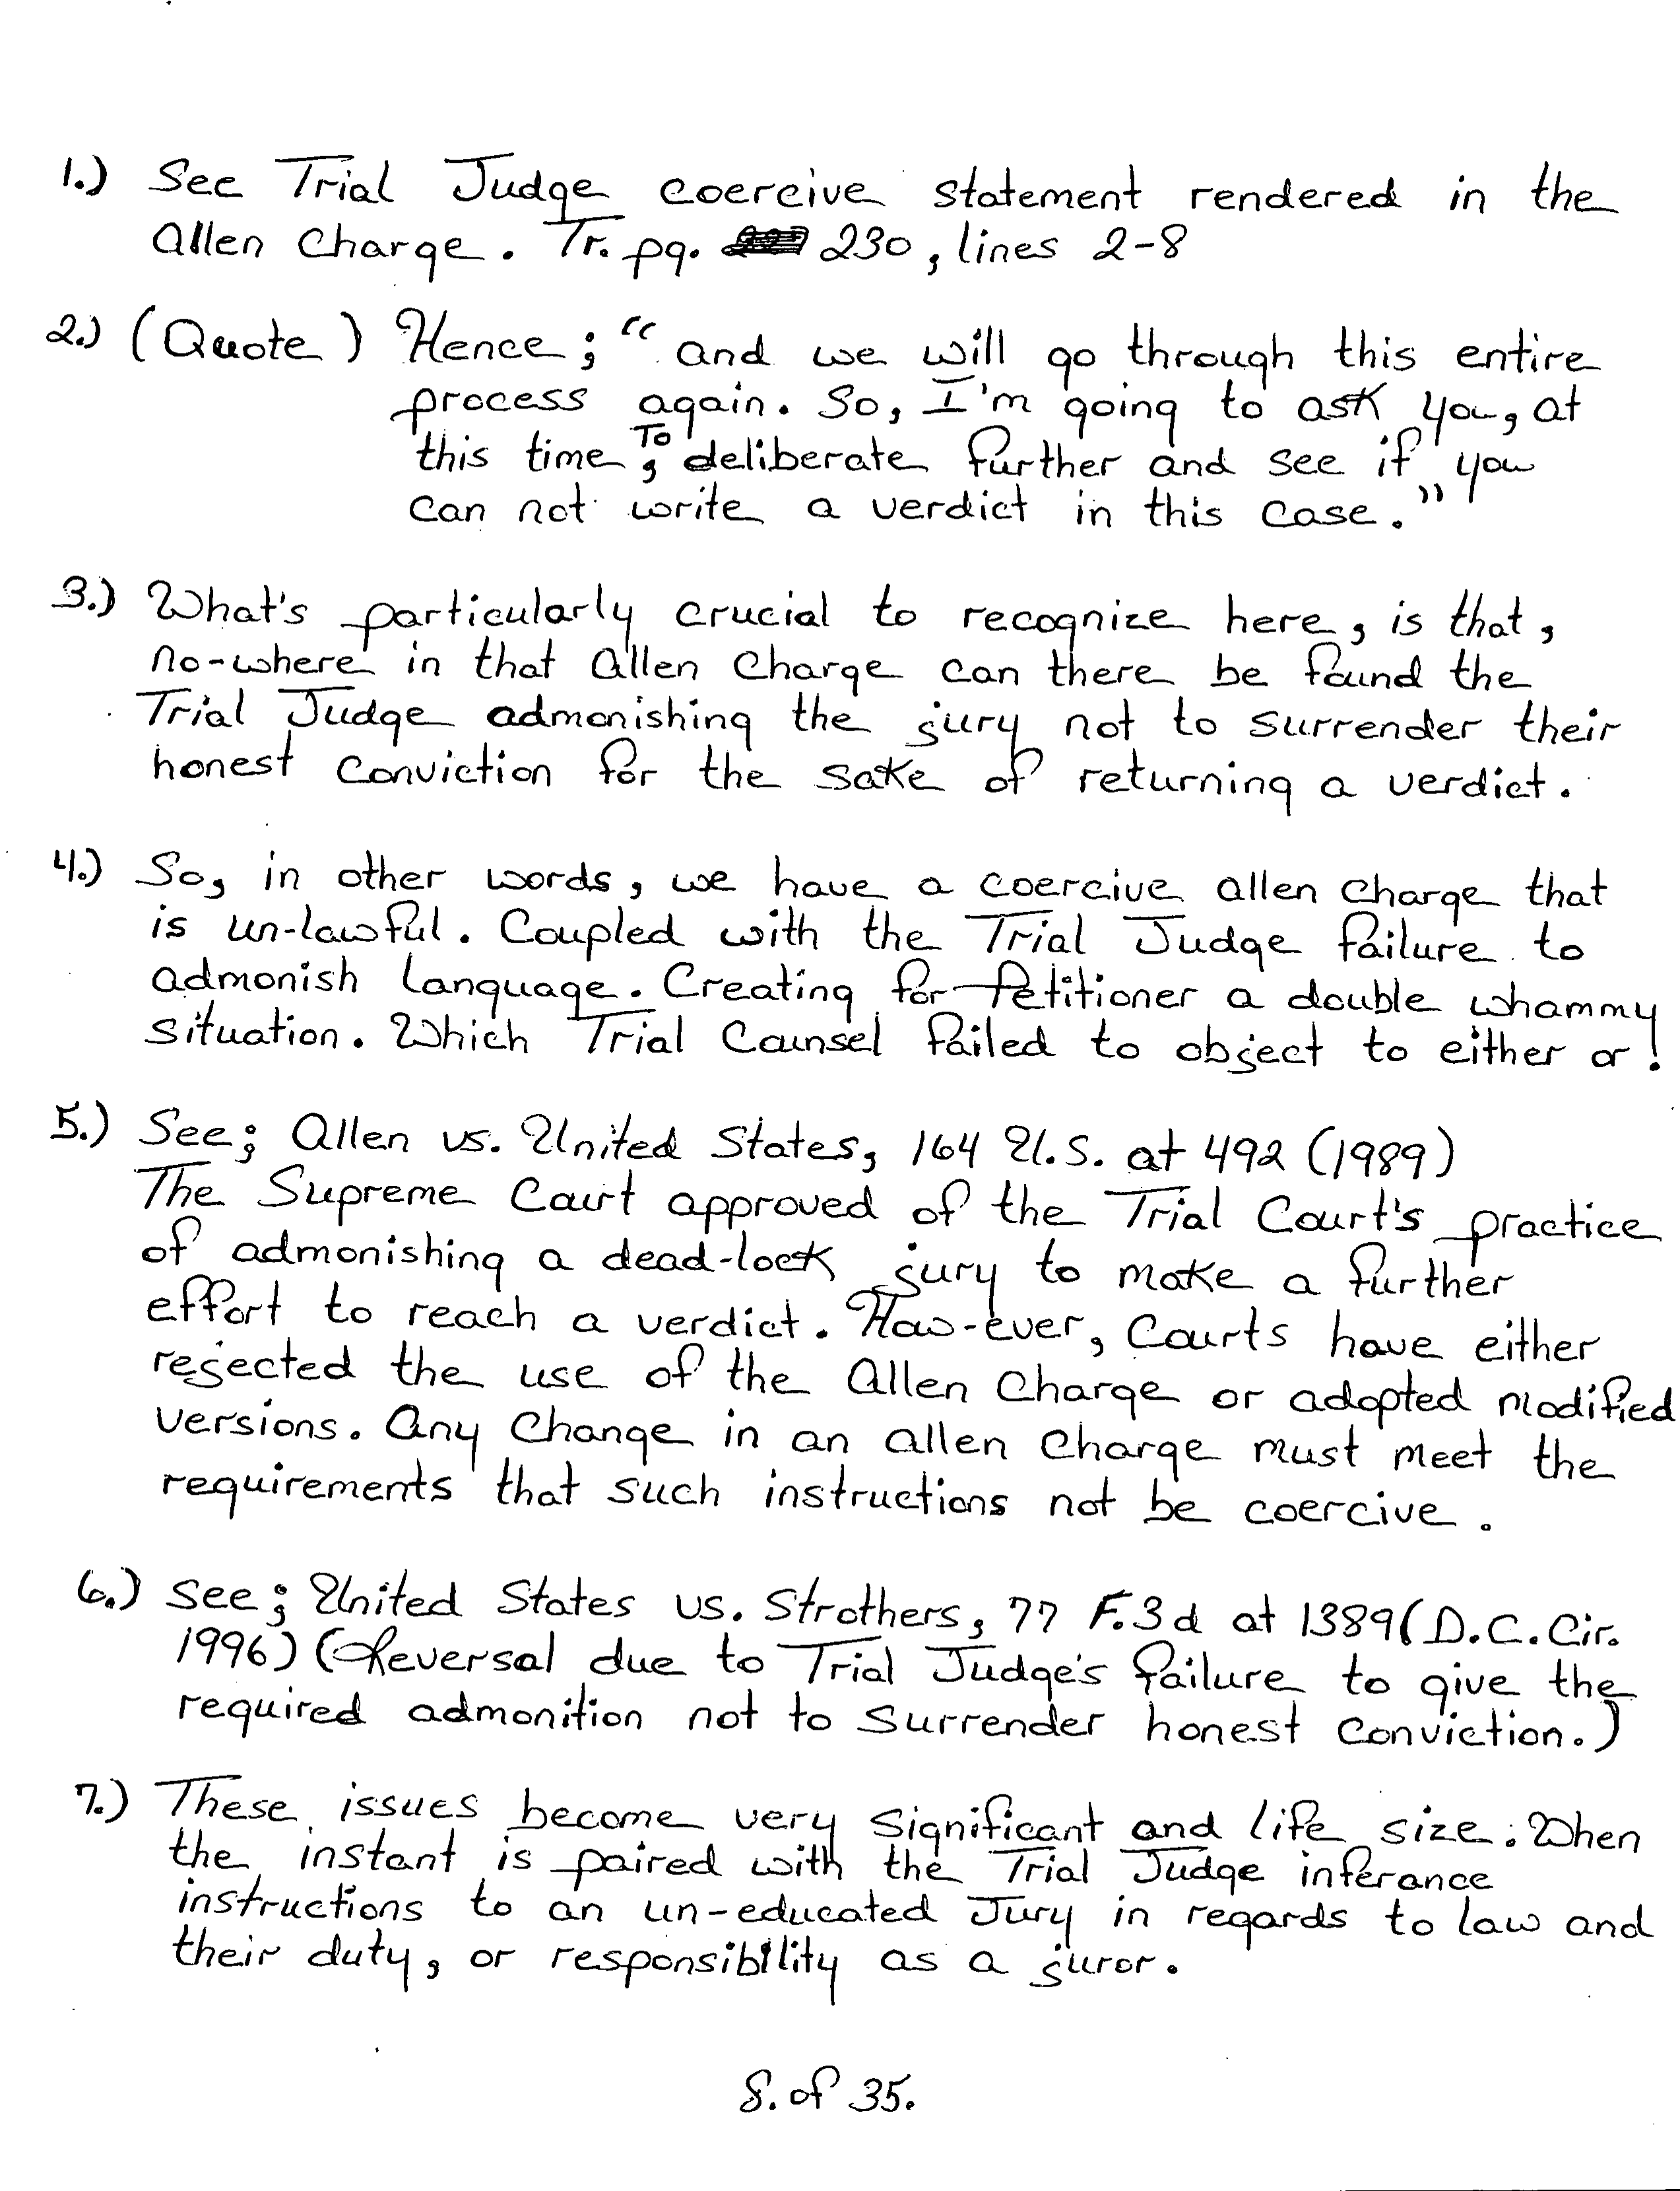 1.) See Trial Judge coercive statement rendered in the
Allen Charge. Tr. pg. 230, lines 2-8
2.) (Quote) Hence; "and we will go through this entire
process again. So, I'm going to ask you, at
this time, To deliberate further and see if you
can not write a verdict in this case."
3.) What's particularly crucial to recognize here, is that,
no-where in that Allen Charge can there be found the
Trial Judge admonishing the jury not to surrender their
honest conviction for the sake of returning a verdict.
4.) So, in other words, we have a coercive allen charge that
is un-lawful. Coupled with the Trial Judge failure to
admonish language. Creating for Petitioner a double whammy
situation. Which Trial Counsel failed to object to either or!
5.) See; Allen vs. United States, 164 U.S. at 492 (1989)
The Supreme Court approved of the Trial Court's practice
of admonishing a dead-lock jury to make a further
effort to reach a verdict. How-ever, Courts have either
rejected the use of the Allen Charge or adopted modified
versions. Any Change in an allen Charge must meet the
requirements that such instructions not be coercive.
6.) See; United States vs. Strothers, 77 F.3d at 1389(D.C. Cir.
1996) (Reversal due to Trial Judge's failure to give the
required admonition not to surrender honest conviction.)
7.) These issues become very significant and life size. When
the instant is paired with the Trial Judge inferance
instructions to an un-educated Jury in regards to law and
their duty, or responsibility as a juror.
8. of 35.